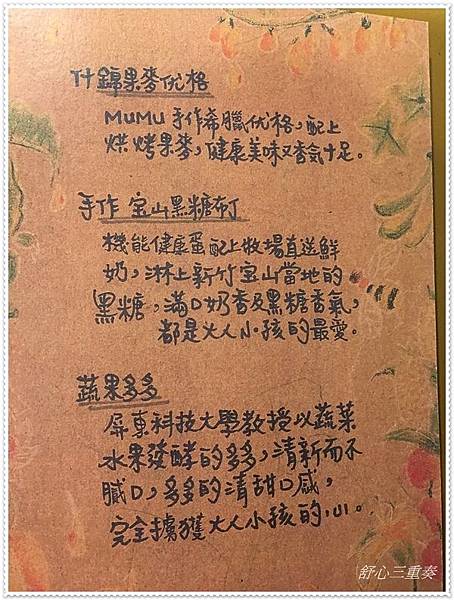 什錦果麥优格
MUMU 手作希臘优格，配上
烘烤果麥，健康美味又香氣十足。
手作 宝山黑糖布丁
機能健康蛋配上牧場直送鮮
奶，淋上新竹宝山當地的
黑糖，滿口奶香及黑糖香氣，
都是大人小孩的最愛。
蔬果多多
屏東科技大學教授以蔬菜
水果發酵的多多，清新而不
膩口，多多的清甜口感，
完全擄獲大人小孩的心。
舒心三重奏